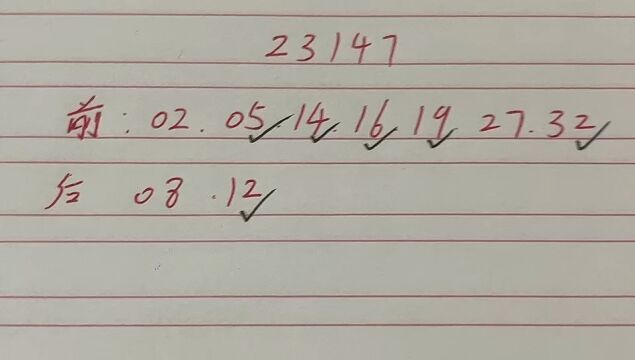 23147
前: 02. 05. 14. 16 19 27. 32
后 08 .12